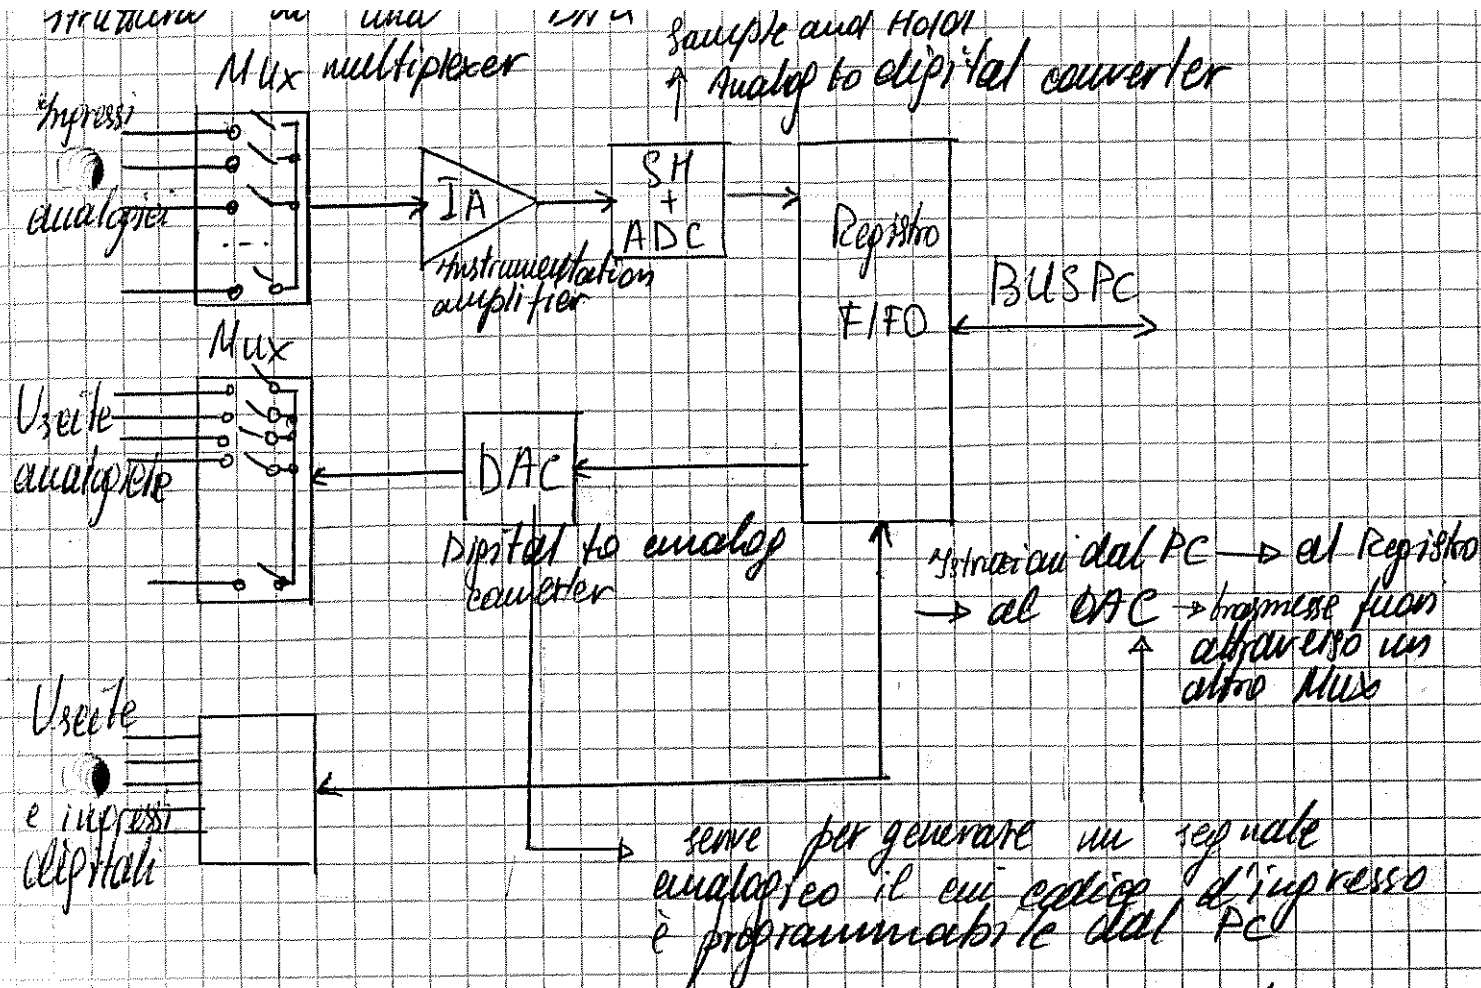 Struttura di una
Sample and Hold
Mux multiplexer
Analog to digital converter
Ingressi
analogici
IA
Instrumentation
amplifier
SH
+
ADC
Registro
FIFO
BUS PC
Mux
Uscite
analogiche
DAC
Digital to analog
converter
Istruzioni dal PC → al Registro
→ al DAC → trasmesse fuori
attraverso un
altro Mux
Uscite
e ingressi
digitali
serve per generare un segnale
analogico il cui codice d'ingresso
è programmabile dal PC